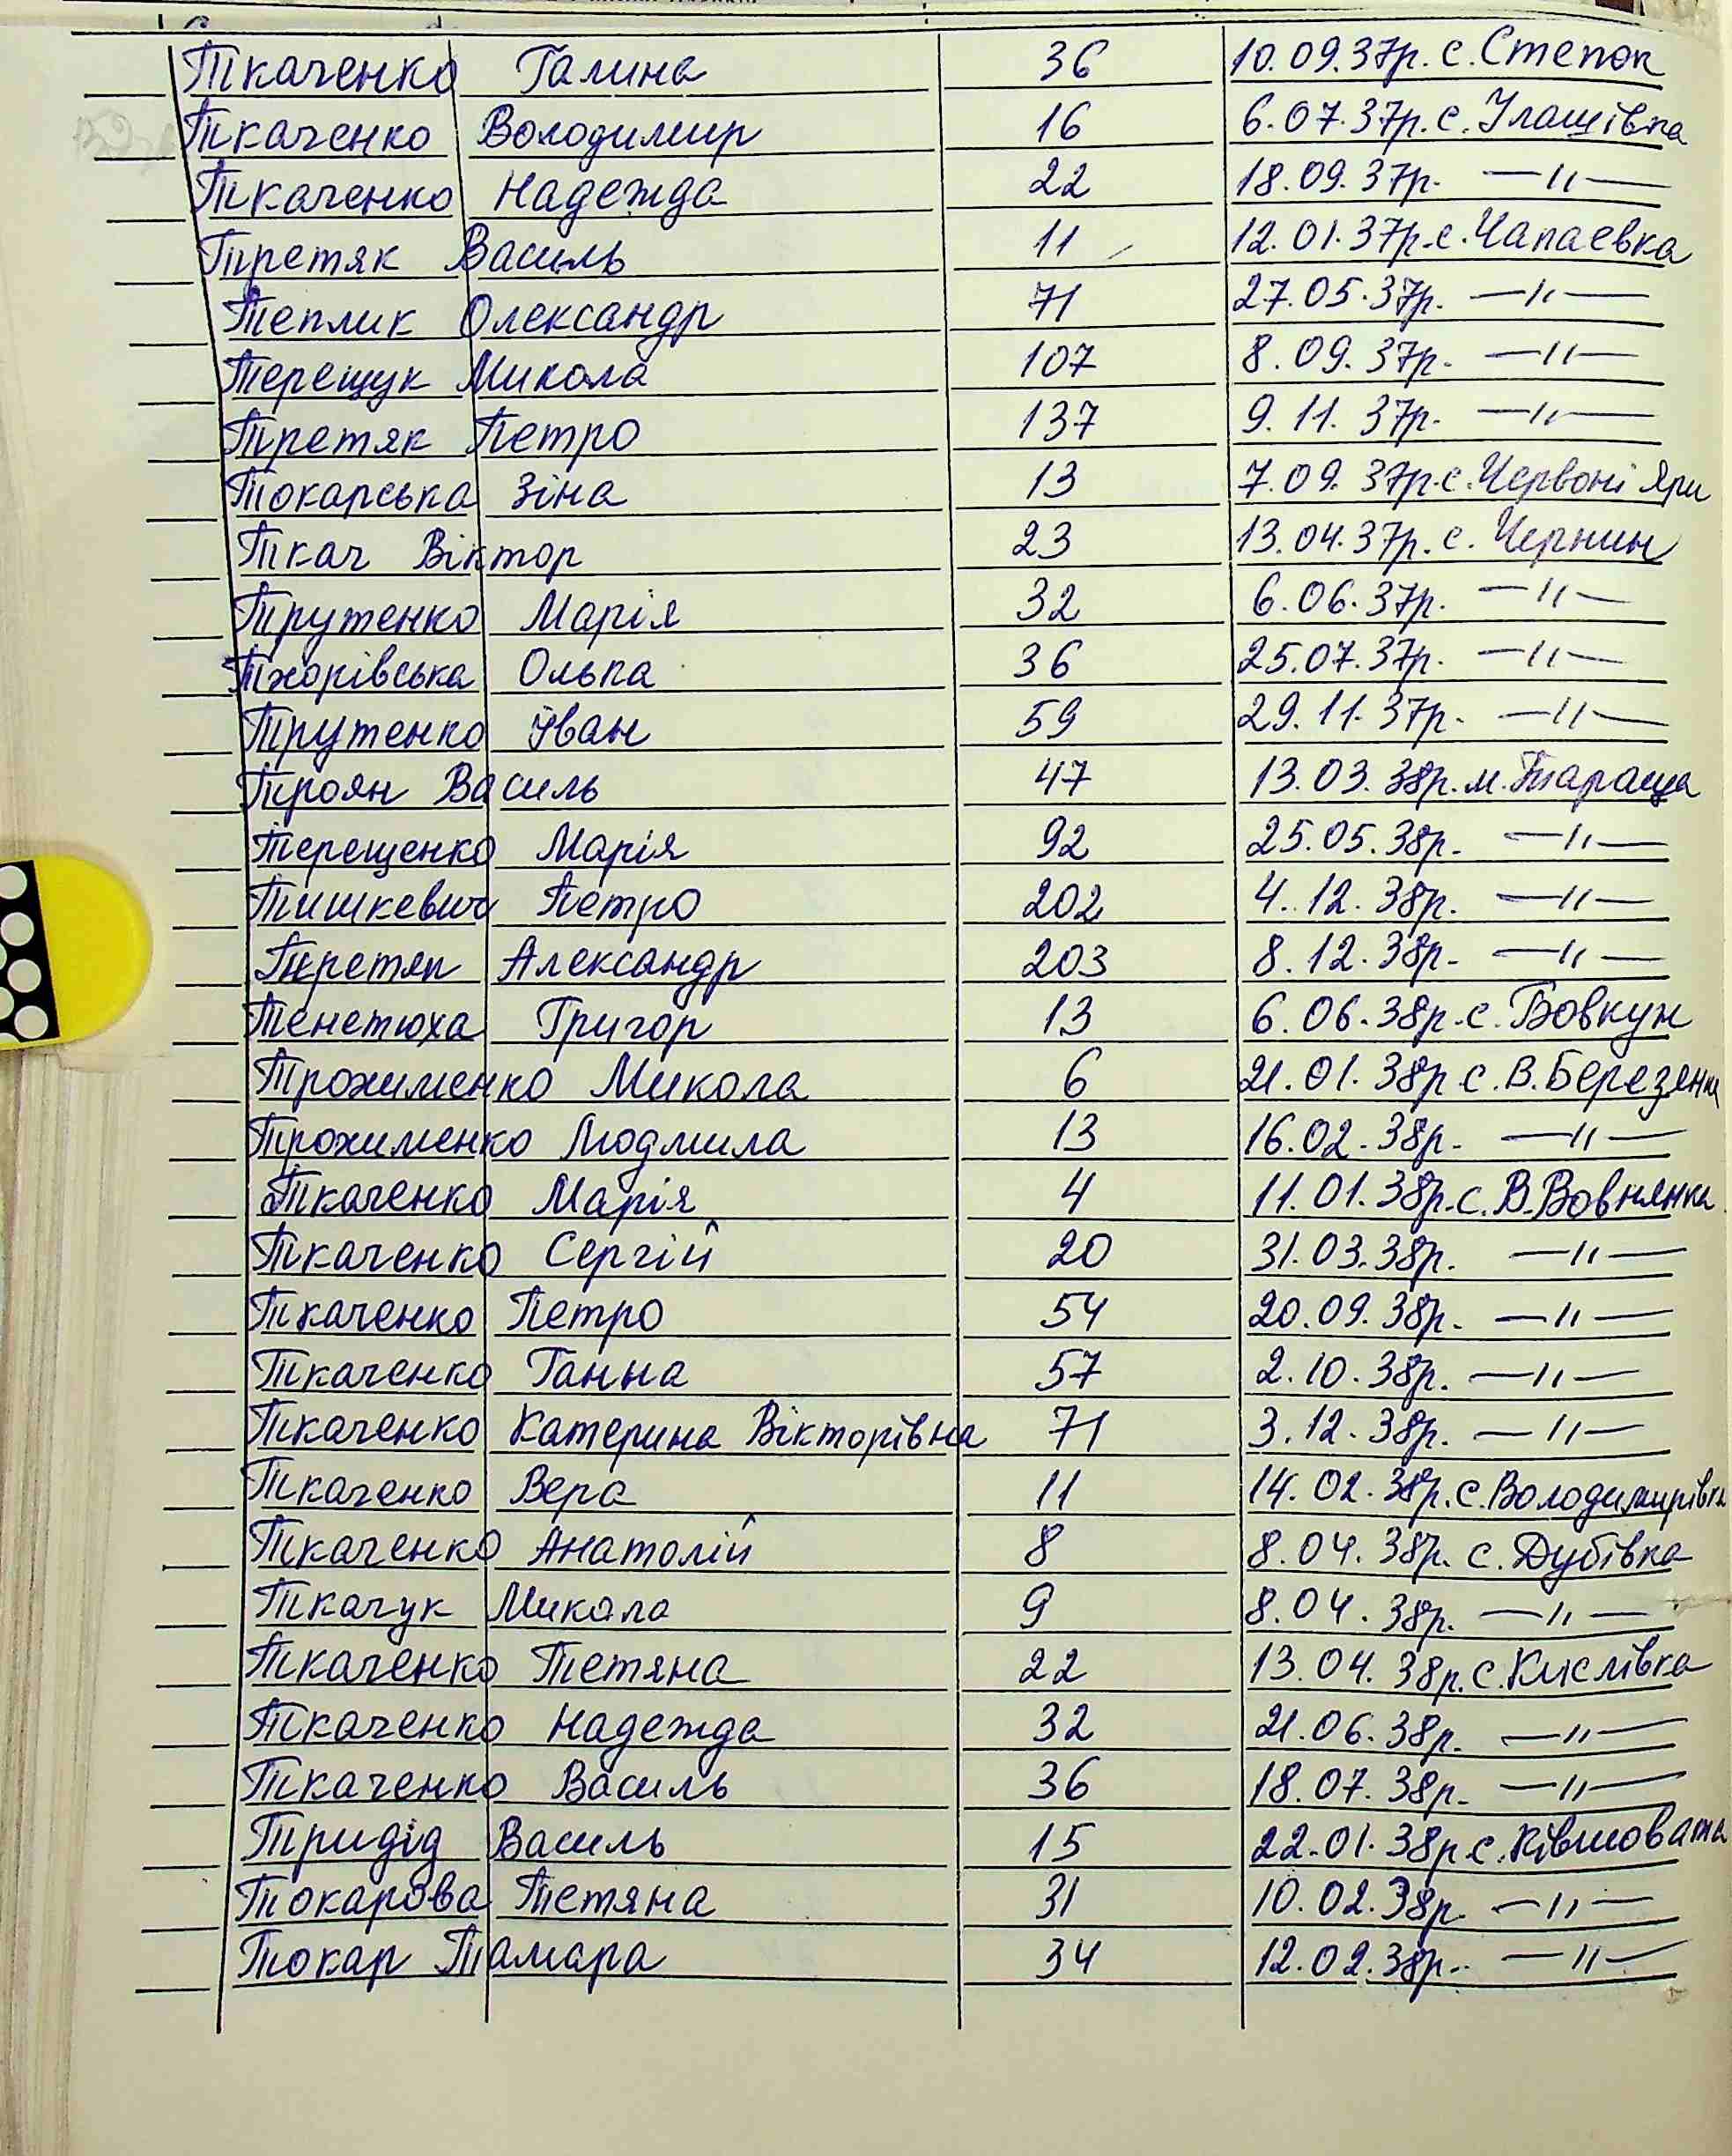 Ткаченко Галина 36 10.09.37р. с. Степок
Ткаченко Володимир 16 6.07.37р. с. Улашівка
Ткаченко Надежда 22 18.09.37р. —״—
Третяк Василь 11 12.01.37р. с. Чапаєвка
Теплик Олександр 71 27.05.37р. —״—
Терещук Микола 107 8.09.37р. —״—
Третяк Петро 137 9.11.37р. —״—
Токарська Зіна 13 7.09.37р. с. Червоні Яри
Ткач Віктор 23 13.04.37р. с. Чернин
Трутенко Марія 32 6.06.37р. —״—
Тхорівська Ольга 36 25.07.37р. —״—
Трутенко Іван 59 29.11.37р. —״—
Троян Василь 47 13.03.38р. м. Тараща
Терещенко Марія 92 25.05.38р. —״—
Тишкевич Петро 202 4.12.38р. —״—
Третяк Александр 203 8.12.38р. —״—
Тенетюха Григор 13 6.06.38р. с. Бовкун
Трохименко Микола 6 21.01.38р с. В. Березянка
Трохименко Людмила 13 16.02.38р. —״—
Ткаченко Марія 4 11.01.38р. с. В. Вовнянка
Ткаченко Сергій 20 31.03.38р. —״—
Ткаченко Петро 54 20.09.38р. —״—
Ткаченко Ганна 57 2.10.38р. —״—
Ткаченко Катерина Вікторівна 71 3.12.38р. —״—
Ткаченко Вера 11 14.02.38р. с. Володимирівка
Ткаченко Анатолій 8 8.04.38р. с. Дубівка
Ткачук Микола 9 8.04.38р. —״—
Ткаченко Тетяна 22 13.04.38р. с. Кислівка
Ткаченко Надежда 32 21.06.38р. —״—
Ткаченко Василь 36 18.07.38р. —״—
Тридід Василь 15 22.01.38р с. Ківшовата
Токарова Тетяна 31 10.02.38р. —״—
Токар Тамара 34 12.02.38р.. —״—